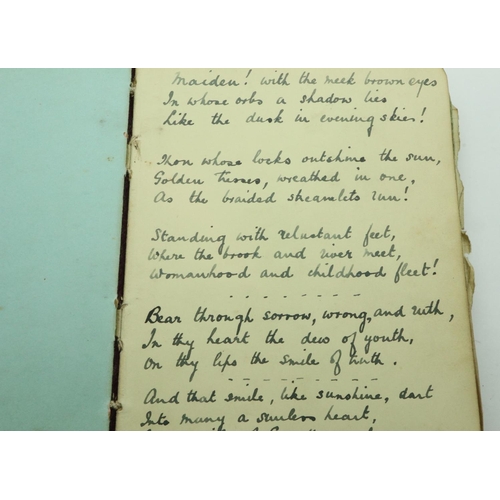 Maiden! with the meek brown eyes
In whose orbs a shadow lies
Like the dusk in evening skies!
Thou whose locks outshine the sun,
Golden tresses, wreathed in one,
As the braided streamlets run!
Standing with reluctant feet,
Where the brook and river meet,
Womanhood and childhood fleet!
- - - - - - - -
Bear through sorrow, wrong, and ruth,
In thy heart the dew of youth,
On thy lips the smile of truth.
- - - - - - - - -
And that smile, like sunshine, dart
Into many a sunless heart,